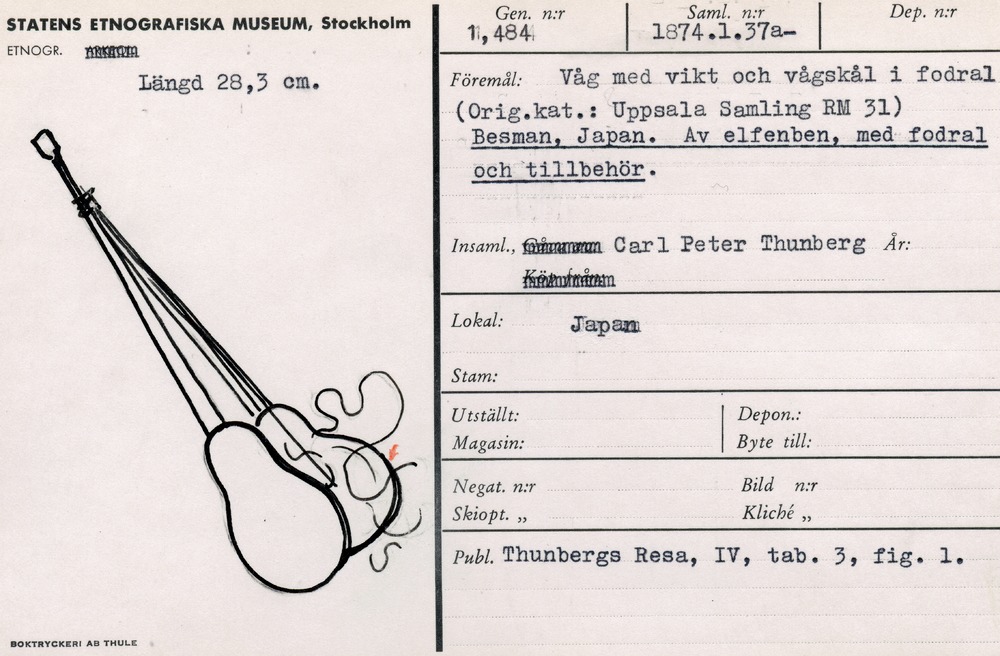 STATENS ETNOGRAFISKA MUSEUM, Stockholm
ETNOGR.
Längd 28,3 cm.
BOKTRYCKERI AB THULE
Gen. n:r
11,484
Saml. n:r
1874.1.37a-
Dep. n:r
Föremål: Våg med vikt och vågskål i fodral
(Orig.kat.: Uppsala Samling RM 31)
Besman, Japan. Av elfenben, med fodral
och tillbehör.
Insaml., Carl Peter Thunberg År:
Köp från:
Lokal: Japan
Stam:
Utställt:
Depon.:
Magasin:
Byte till:
Negat. n:r
Bild n:r
Skiopt. „
Kliché „
Publ. Thunbergs Resa, IV, tab. 3, fig. 1.